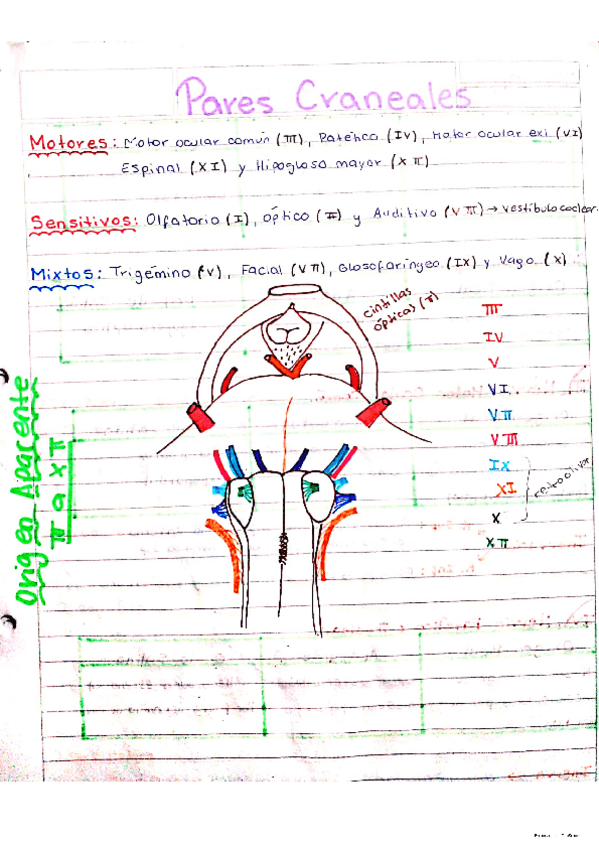 Pares Craneales
Motores: Motor ocular común (III), Patético (IV), Motor ocular ext (VI)
Espinal (XI) y Hipogloso mayor (XII)
Sensitivos: Olfatorio (I), óptico (II) y Auditivo (VIII) → vestibulococlear.
Mixtos: Trigémino (V), Facial (VII), Glosofaríngeo (IX) y Vago (X)
Cintillas
ópticas (II)
III
IV
V
VI
VII
VIII
IX
XI
X
XII
retroolivar
Origen Aparente
II a XII